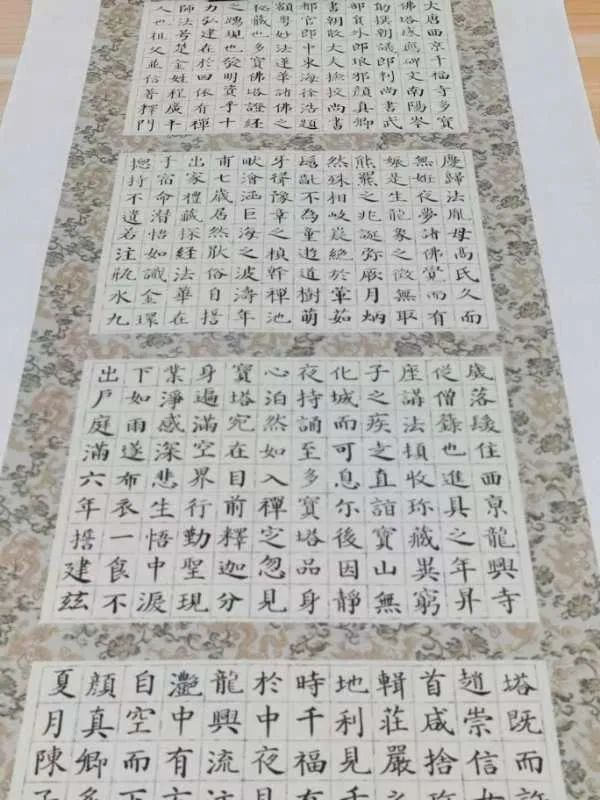 大唐西京千福寺多寶
佛塔感應碑文南陽岑
勛撰朝議郎判尚書武
部員外郎琅邪顏真卿
書朝散大夫撿挍尚書
都官郎中東海徐浩題
額粵妙法蓮華諸佛之
秘藏也多寶佛塔證經
之踴現也發明資乎十
力弘建在於四依有禪
師法号楚金姓程廣平
人也祖父並信著釋門
慶歸法胤母高氏久而
無姙夜夢諸佛覺而有
娠是生龍象之徵無取
熊羆之兆誕弥厥月炳
然殊相岐嶷絕於葷茹
髫齓不為童遊道樹萌
牙聳豫章之楨幹禪池
畎澮涵巨海之波濤年
甫七歲居然猒俗自誓
出家禮藏探經法華在
手宿命潛悟如識金環
揔持不遺若注瓶水九
歲落髮住西京龍興寺
從僧籙也進具之年昇
座講法頓收珎藏異窮
子之疾走直詣寶山無
化城而可息尔後因靜
夜持誦至多寶塔品身
心泊然如入禪定忽見
寶塔宛在目前釋迦分
身遍滿空界行勤聖現
業淨感深悲生悟中淚
下如雨遂布衣一食不
出戶庭滿六年誓建茲
塔既而許
趙崇信女
首咸捨珎
輯莊嚴
地利見
時千福有
於中夜見
龍興流注
灔中有方
自空而下
顏真卿
夏月陳